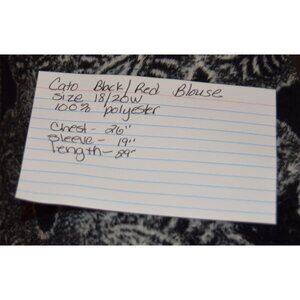 Cato Black/Red Blouse
Size 18/20W
100% polyester
Chest - 26"
Sleeve - 19"
Length - 29"